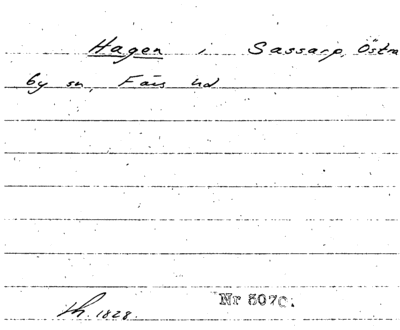 Hagen i Sassarp, Östra
by sn, Färs hd
lh. 1828.
Nr 507C.